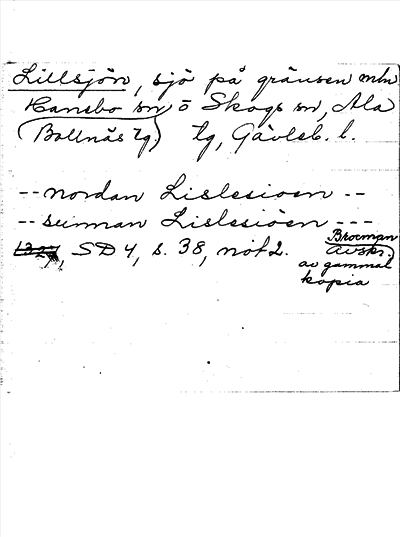 Lillsjön, sjö på gränsen mln
Hanebo sn ö Skogs sn, Ala
(Bollnäs tg) tg, Gävleb. l.
-- nordan Lislesioen --
-- sunnan Lislesiöen ---
1327, SD 4, s. 38, not 2.
Brocman
avskr.
av gammal
kopia